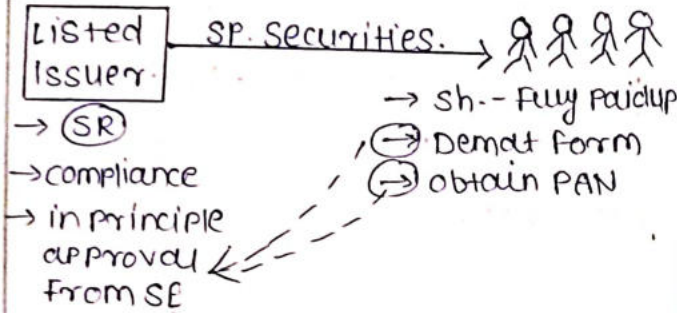 Listed
Issuer.
SP. Securities.
→ SR
→ compliance
→ in principle
approval
from SE
→ Sh.-- Fully paidup
→ Demat form
→ obtain PAN